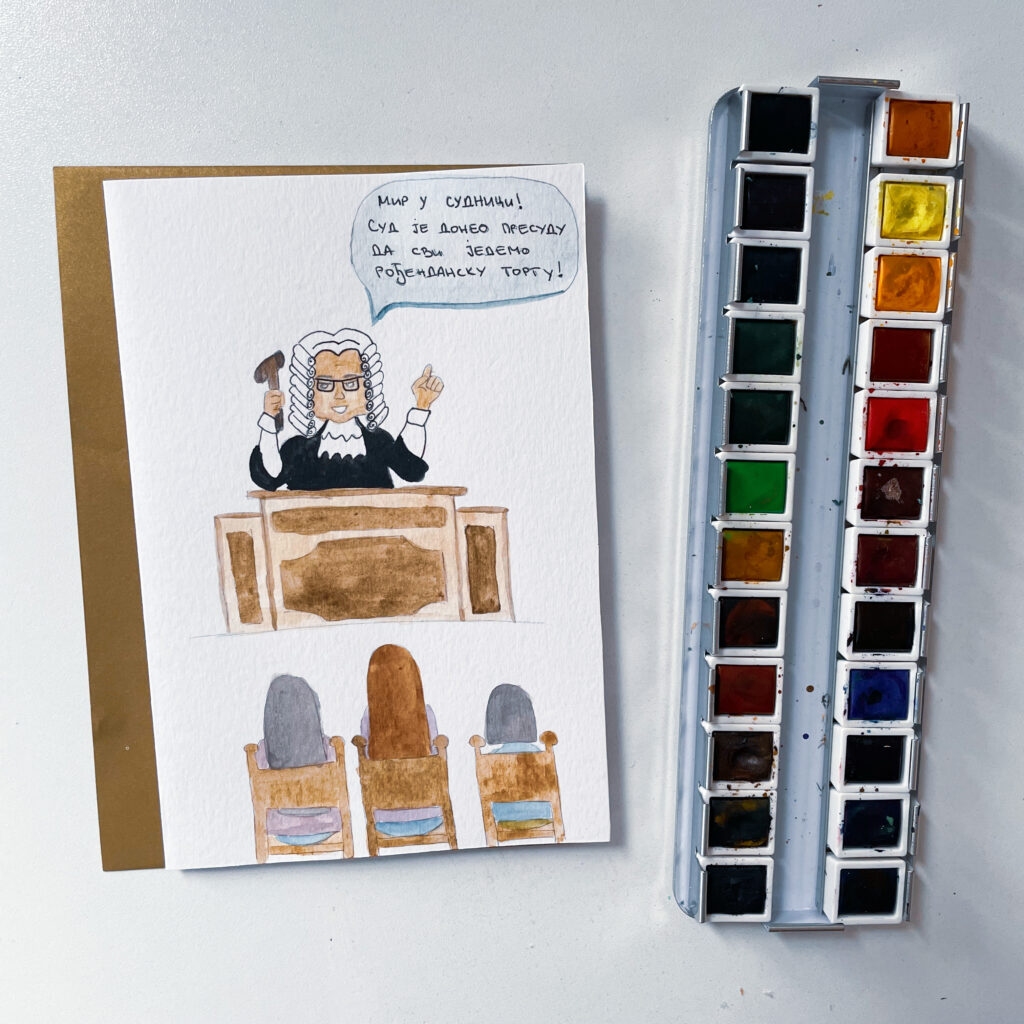 МИР У СУДНИЦИ!
СУД ЈЕ ДОНЕО ПРЕСУДУ
ДА СВИ ЈЕДЕМО
РОЂЕНДАНСКУ ТОРТУ!